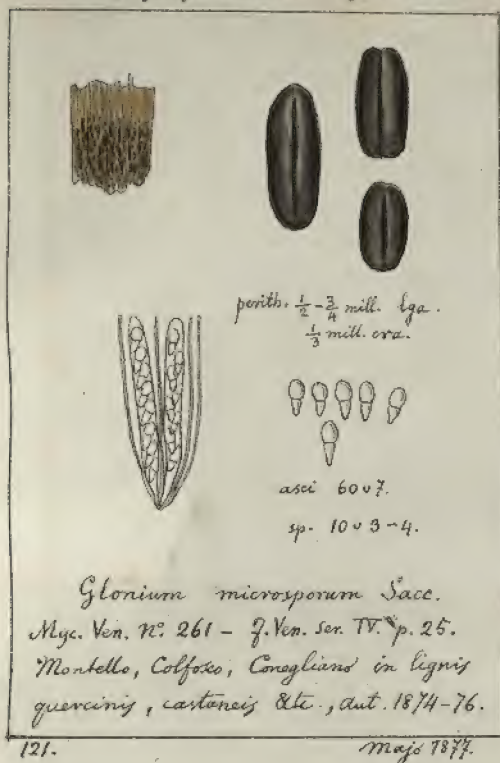 perith. ½ - ¾ mill. lga.
⅓ mill. cra.
asci 60 v 7.
sp. 10 v 3-4.
Glonium microsporum Sacc.
Myc. Ven. Nº. 261 - F. Ven. Ser. IV. p. 25.
Montello, Colfosco, Conegliano in lignis
quercinis, castaneis &tc., aut. 1874-76.
121. Majo 1877.